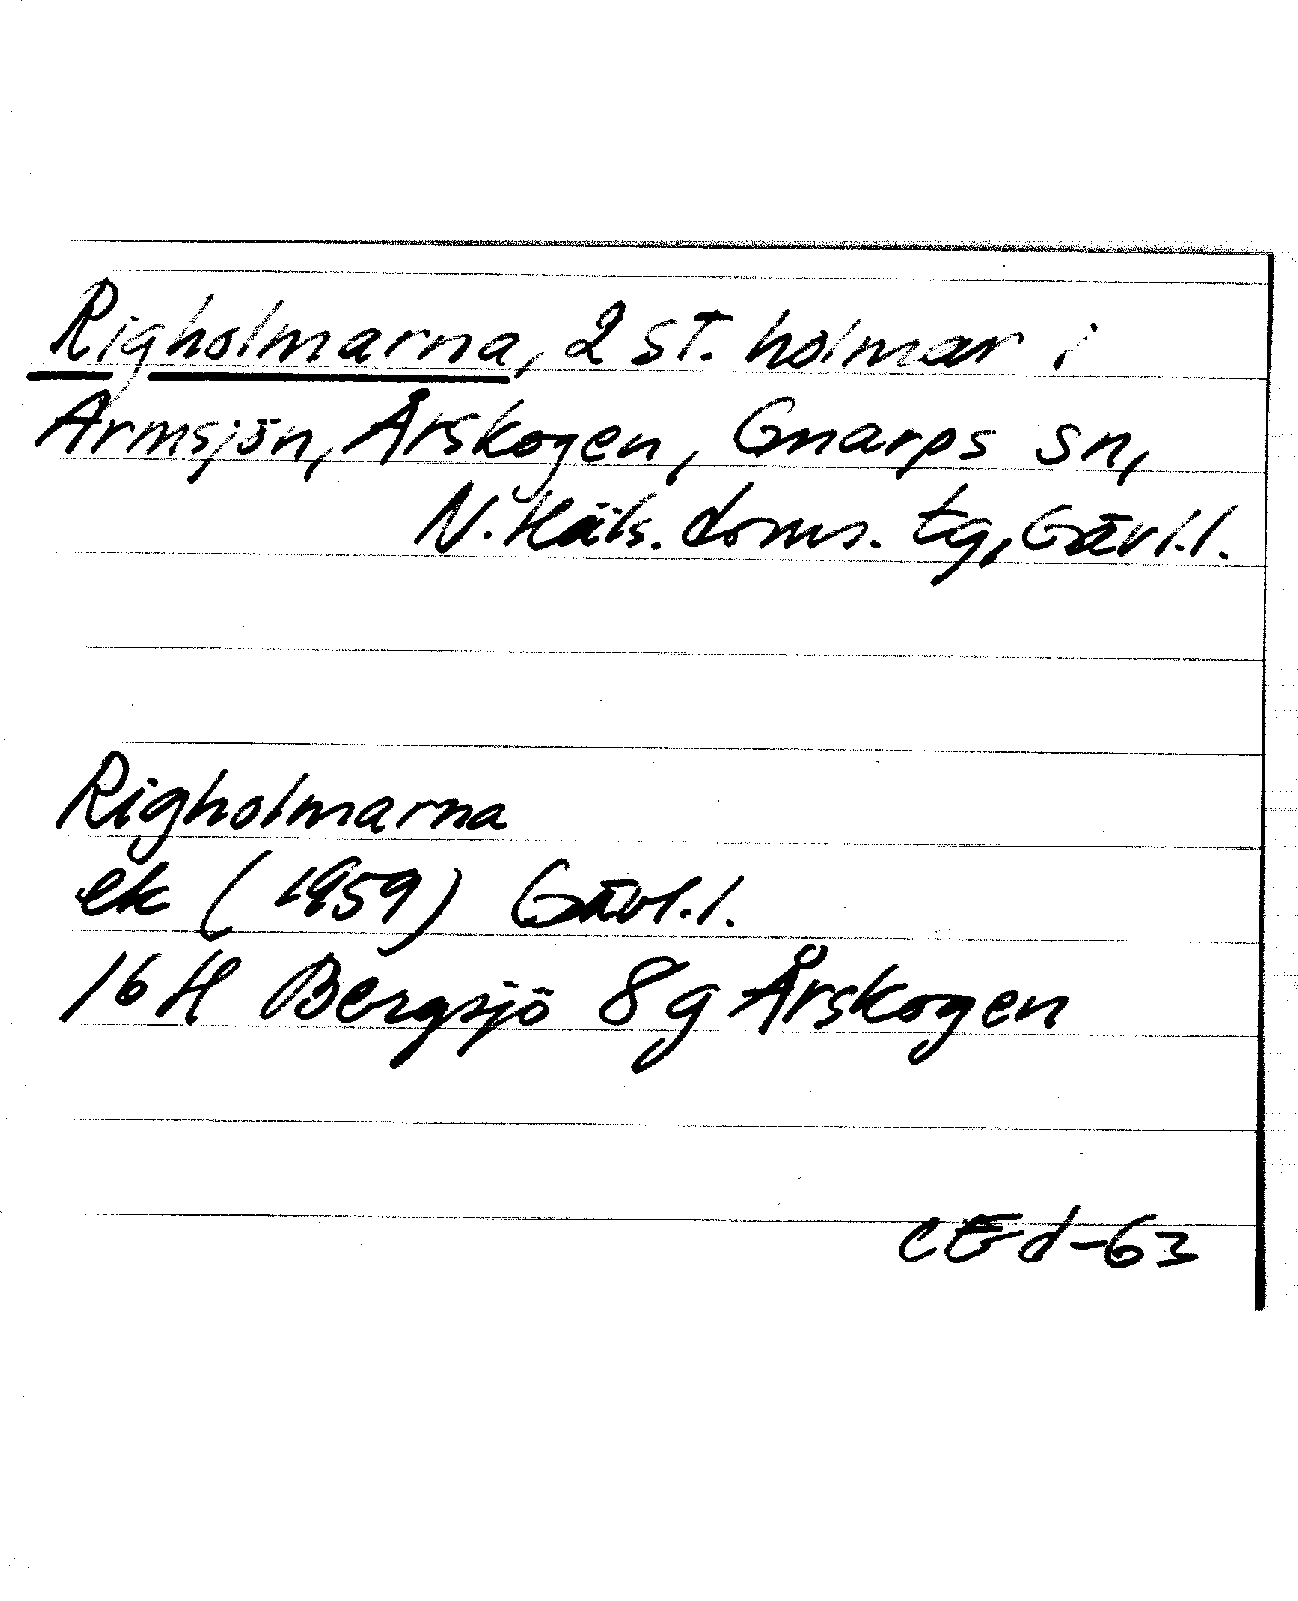 Righolmarna, 2 st. holmar i
Armsjön, Årskogen, Gnarps sn,
N. Häls. doms. tg, Gävl.l.
Righolmarna
ek (1959) Gävl.l.
16H Bergsjö 8g Årskogen
CEd-63